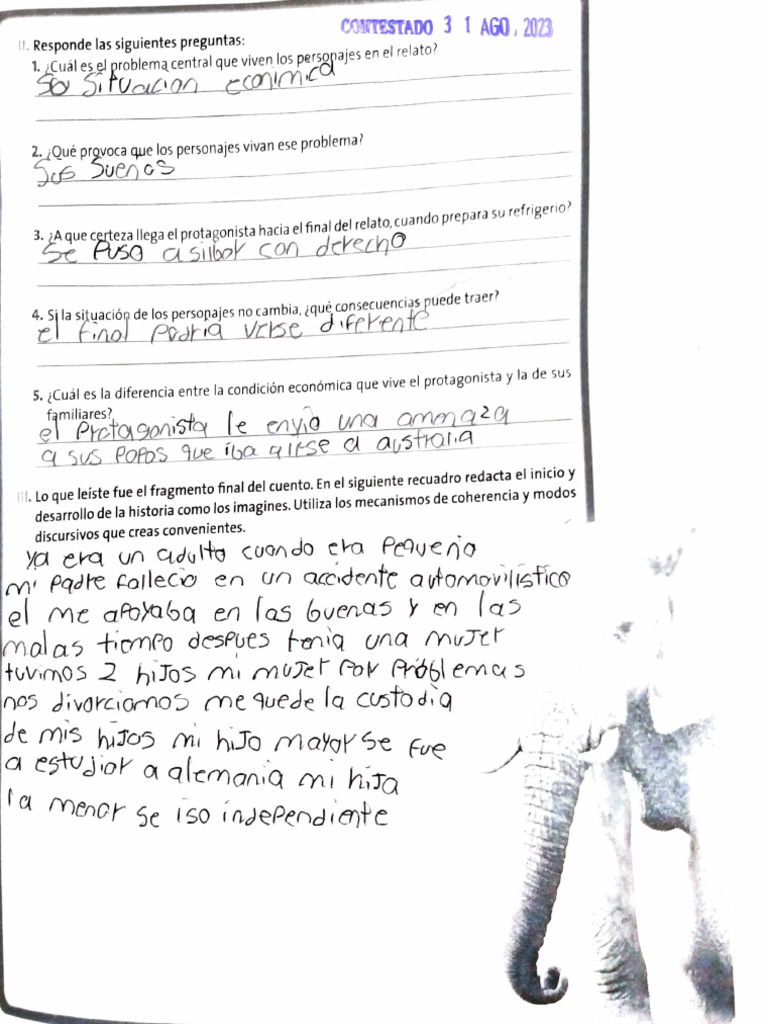 CONTESTADO 3 1 AGO, 2023
II. Responde las siguientes preguntas:
1. ¿Cuál es el problema central que viven los personajes en el relato?
Su situacion econimica
2. ¿Qué provoca que los personajes vivan ese problema?
Sus Sueños
3. ¿A que certeza llega el protagonista hacia el final del relato, cuando prepara su refrigerio?
Se puso a silbar con derecho
4. Si la situación de los personajes no cambia, ¿qué consecuencias puede traer?
el final podria verse diferente
5. ¿Cuál es la diferencia entre la condición económica que vive el protagonista y la de sus
familiares?
el Protagonista le envio una
a sus papas que iba a irse a australia
III. Lo que leíste fue el fragmento final del cuento. En el siguiente recuadro redacta el inicio y
desarrollo de la historia como los imagines. Utiliza los mecanismos de coherencia y modos
discursivos que creas convenientes.
ya era un adulto cuando era Pequeño
mi padre fallecio en un accidente automovilistico
el me apoyaba en las buenas y en las
malas tiempo despues tenia una mujer
tuvimos 2 hijos mi mujer por problemas
nos divorciamos me quede la custodia
de mis hijos mi hijo mayor se fue
a estudiar a alemania mi hija
la menor se iso independiente